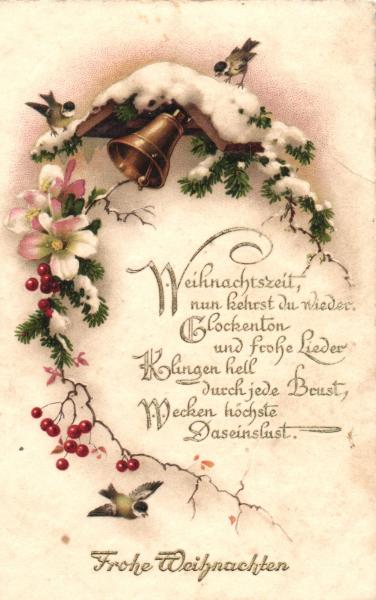 Weihnachtszeit,
nun kehrst du wieder.
Glockenton
und frohe Lieder
Klingen hell
durch jede Brust,
Wecken höchste
Daseinslust.
Frohe Weihnachten